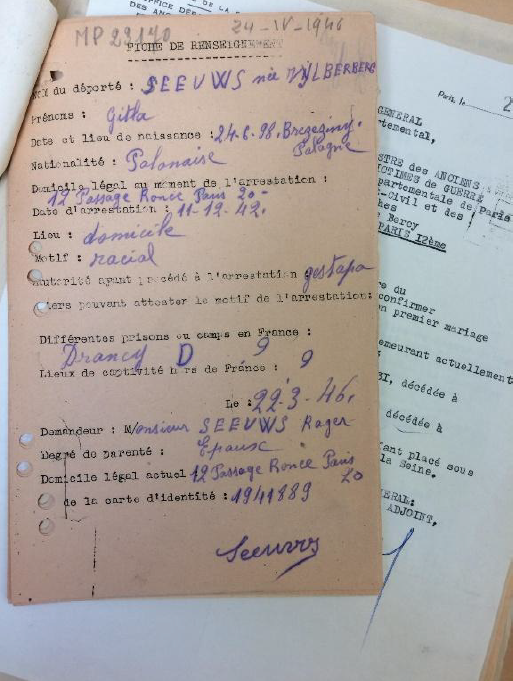 MP 23140
24-IV-1946
FICHE DE RENSEIGNEMENT
du déporté : SEEUWS née WYLBERBERG
Prénoms : Gitla
Date et lieu de naissance : 24.6.98. Brezeginy.
Pologne
Nationalité : Polonaise
Domicile légal au moment de l'arrestation :
12 Passage Ronce Paris 20-
Date d'arrestation : 11-12-42.
Lieu : domicile
Motif : racial
Autorité ayant procédé à l'arrestation gestapo
pouvant attester le motif de l'arrestation:
Différentes prisons ou camps en France :
Drancy D 9
Lieux de captivité hors de France : 9
Le : 22.3-46.
Demandeur : Monsieur SEEUWS Roger
Degré de parenté : Epoux
Domicile légal actuel 12 Passage Ronce Paris
20
de la carte d'identité : 1941889
Seeuws
DE LA
OFFICE DÉP
DES ANC
Paris, le 2
GENERAL
artemental,
STRE des ANCIENS
ICTIMES de GUERRE
épartementale de Paris
-Civil et des
hes
Bercy
PARIS 12ème
re du
confirmer
en premier mariage
emeurant actuellement
BI, décédée à
décédée à
fant placé sous
la Seine.
ERAL:
ADJOINT,